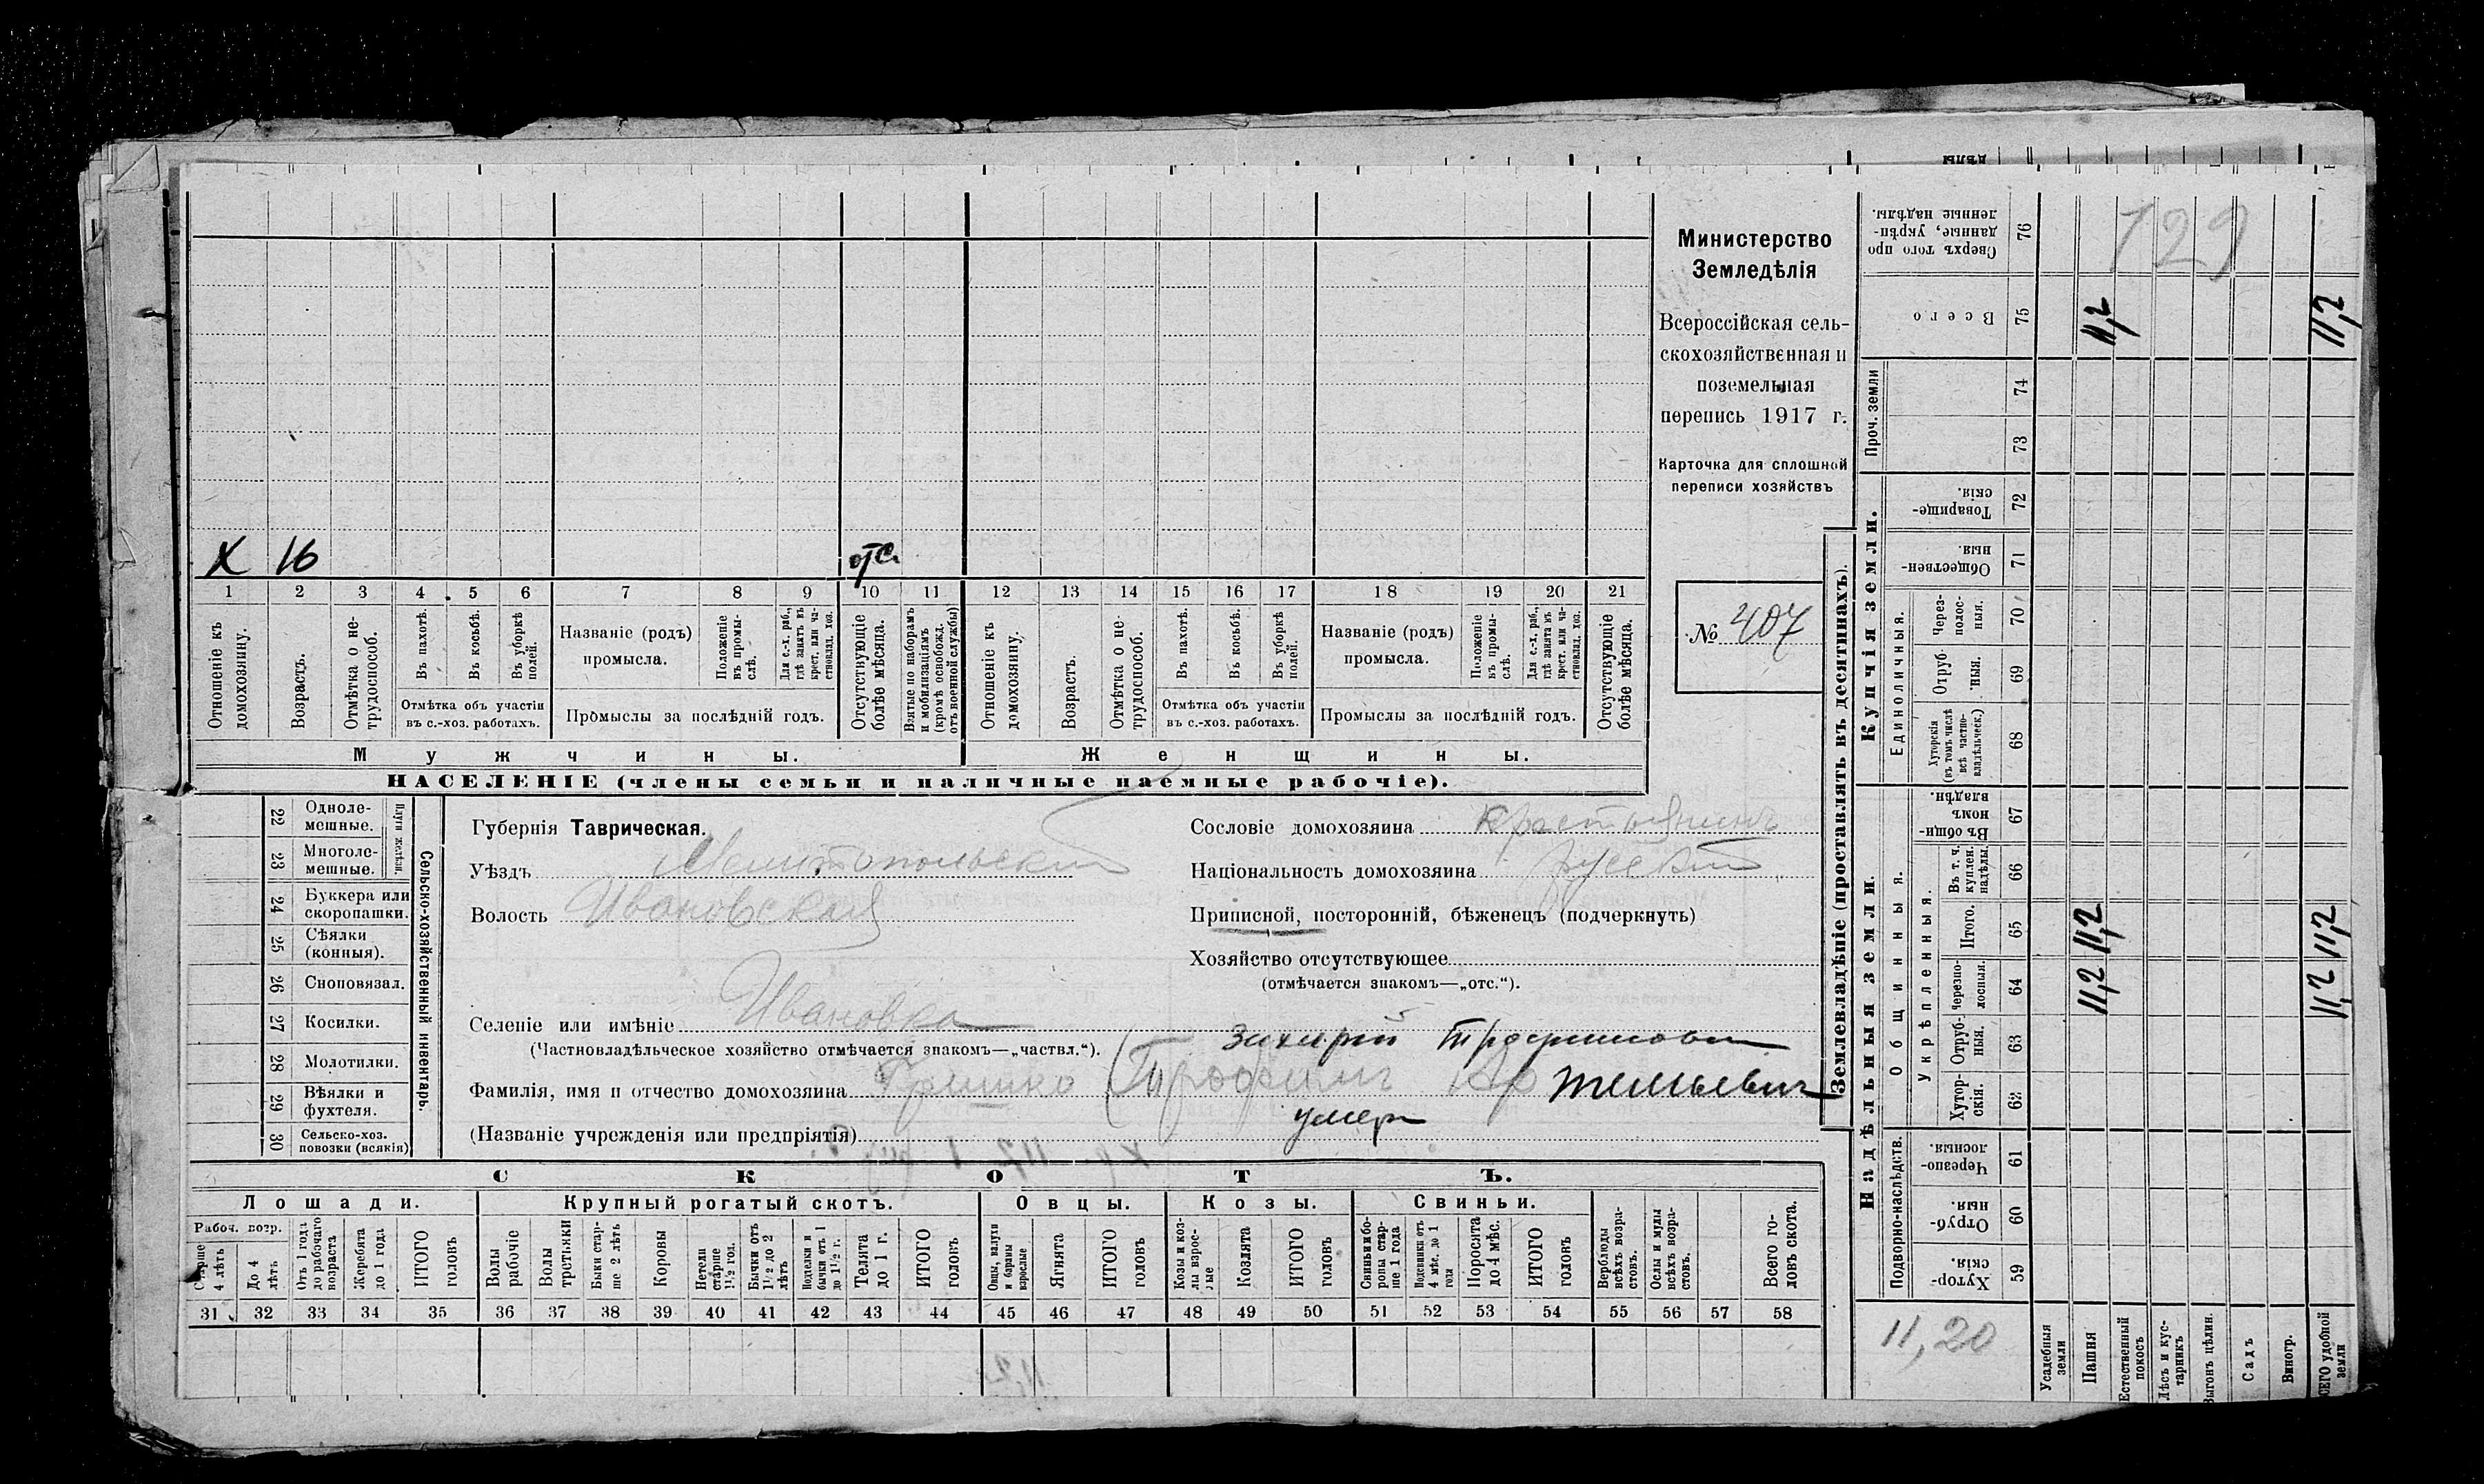 Х 16 отс.
1 2 3 4 5 6 7 8 9 10 11 12 13 14 15 16 17 18 19 20 21
Отношеніе къ домохозяину.
Возрастъ.
Отмѣтка о не-
трудоспособ.
Въ пахотѣ.
Въ косьбѣ.
Въ уборкѣ
полей.
Отмѣтка объ участіи
въ с.-хоз. работахъ.
Названіе (родъ)
промысла.
Положеніе
въ промы-
слѣ.
Для с.-х. раб.,
гдѣ занятъ въ
крест. или ча-
стновлад. хоз.
Промыслы за послѣдній годъ.
Отсутствующіе
болѣе мѣсяца.
Взятые по наборамъ
и мобилизаціямъ
(кромѣ освобожд.
отъ военной службы)
Отношеніе къ
домохозяину.
Возрастъ.
Отмѣтка о не-
трудоспособ.
Въ пахотѣ.
Въ косьбѣ.
Въ уборкѣ
полей.
Отмѣтка объ участіи
въ с.-хоз. работахъ.
Названіе (родъ)
промысла.
Положеніе
въ промы-
слѣ.
Для с.-х. раб.,
гдѣ занята въ
крест. или ча-
стновлад. хоз.
Промыслы за послѣдній годъ.
Отсутствующіе
болѣе мѣсяца.
Мужчины.
Женщины.
НАСЕЛЕНІЕ (члены семьи и наличные наемные рабочіе).
Министерство
Земледѣлія
Всероссійская сель-
скохозяйственная и
поземельная
перепись 1917 г.
Карточка для сплошной
переписи хозяйствъ
№ 407
22 Одноле-
мешные.
23 Многоле-
мешные.
Плуги желѣзн.
24 Буккера или
скоропашки.
25 Сѣялки
(конныя).
26 Сноповязал.
27 Косилки.
28 Молотилки.
29 Вѣялки и
фухтеля.
30 Сельско-хоз.
повозки (всякія)
Сельско-хозяйственный инвентарь.
Губернія Таврическая.
Уѣздъ Мелитопольскій
Волость Ивановская
Селеніе или имѣніе Ивановка
(Частновладѣльческое хозяйство отмѣчается знакомъ—„частвл.“).
Захарій Трофимови
Фамилія, имя и отчество домохозяина Гришко (Трофимъ Артемьевич
умер
(Названіе учрежденія или предпріятія)
Сословіе домохозяина крестьянинъ
Національность домохозяина русскій
Приписной, посторонній, бѣженецъ (подчеркнуть)
Хозяйство отсутствующее
(отмѣчается знакомъ—„отс.“).
СКОТЪ.
Лошади.
Крупный рогатый скотъ.
Овцы.
Козы.
Свиньи.
Рабоч. возр.
Старше
4 лѣтъ
До 4
лѣтъ
Отъ 1 года
до рабочаго
возраста
Жеребята
до 1 года
ИТОГО
головъ
Волы
рабочіе
Волы
третьяки
Быки стар-
ше 2 лѣтъ
Коровы
Нетели
старше
1½ год.
Бычки отъ
1½ до 2
лѣтъ
Подтелки и
бычки отъ 1
до 1½ г.
Телята
до 1 г.
ИТОГО
головъ
Овцы, валухи
и бараны
взрослые
Ягнята
ИТОГО
головъ
Козы и коз-
лы взрос-
лые
Козлята
ИТОГО
головъ
Свиньи и бо-
ровы стар-
ше 1 года
Подсвинки отъ
4 мѣс. до 1
года
Поросята
до 4 мѣс.
ИТОГО
головъ
Верблюды
всѣхъ возра-
стовъ.
Ослы и мулы
всѣхъ возра-
стовъ.
Всего го-
ловъ скота.
31 32 33 34 35 36 37 38 39 40 41 42 43 44 45 46 47 48 49 50 51 52 53 54 55 56 57 58
Землевладѣніе (проставлять въ десятинахъ).
Сверхъ того про
данные, укрѣп-
ленные надѣлы.
76
129
Всего 75 11,2 11,2
Проч. земли
74
73
Купчія земли.
Товарище-
скія. 72
Обществен-
ныя. 71
Единоличныя.
Через-
полос-
ныя. 70
Отруб-
ныя. 69
Хуторскія
(въ томъ числѣ
всѣ частно-
владѣльческ.) 68
Надѣльныя земли.
Общинныя.
Въ общи-
номъ
владѣн. 67
Укрѣпленныя.
Въ т. ч.
куплен.
надѣлы. 66
Итого. 65 11,2 11,2
Черезпо-
лосныя. 64 11,2 11,2
Отруб-
ныя. 63
Хутор-
скія. 62
Подворно-наслѣдств.
Черезпо-
лосныя. 61
Отруб-
ныя. 60
Хутор-
скія. 59
11,20
Усадебныя
земли
Пашня
Естественный
покосъ
Лѣсъ и кус-
тарникъ
Выгонъ цѣлин.
Садъ
Виногр.
ВСЕГО удобной
земли